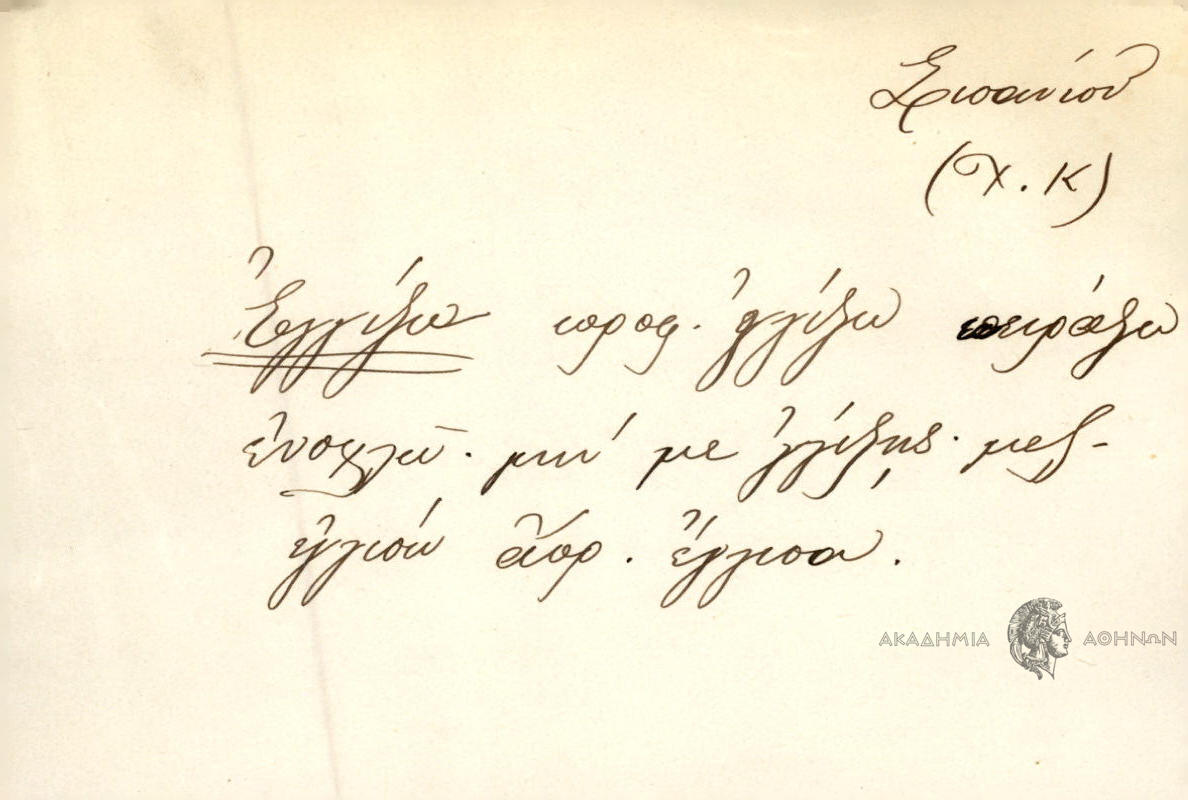 Σισανίου
(Χ. Κ)
Ἐγγίζω προφ. ἐγγίζω πειράζω
ἐνοχλῶ. μή με ἐγγίζης. μελ-
ἐγγισω ἀορ. ἔγγισα.
ΑΚΑΔΗΜΙΑ ΑΘΗΝΩΝ